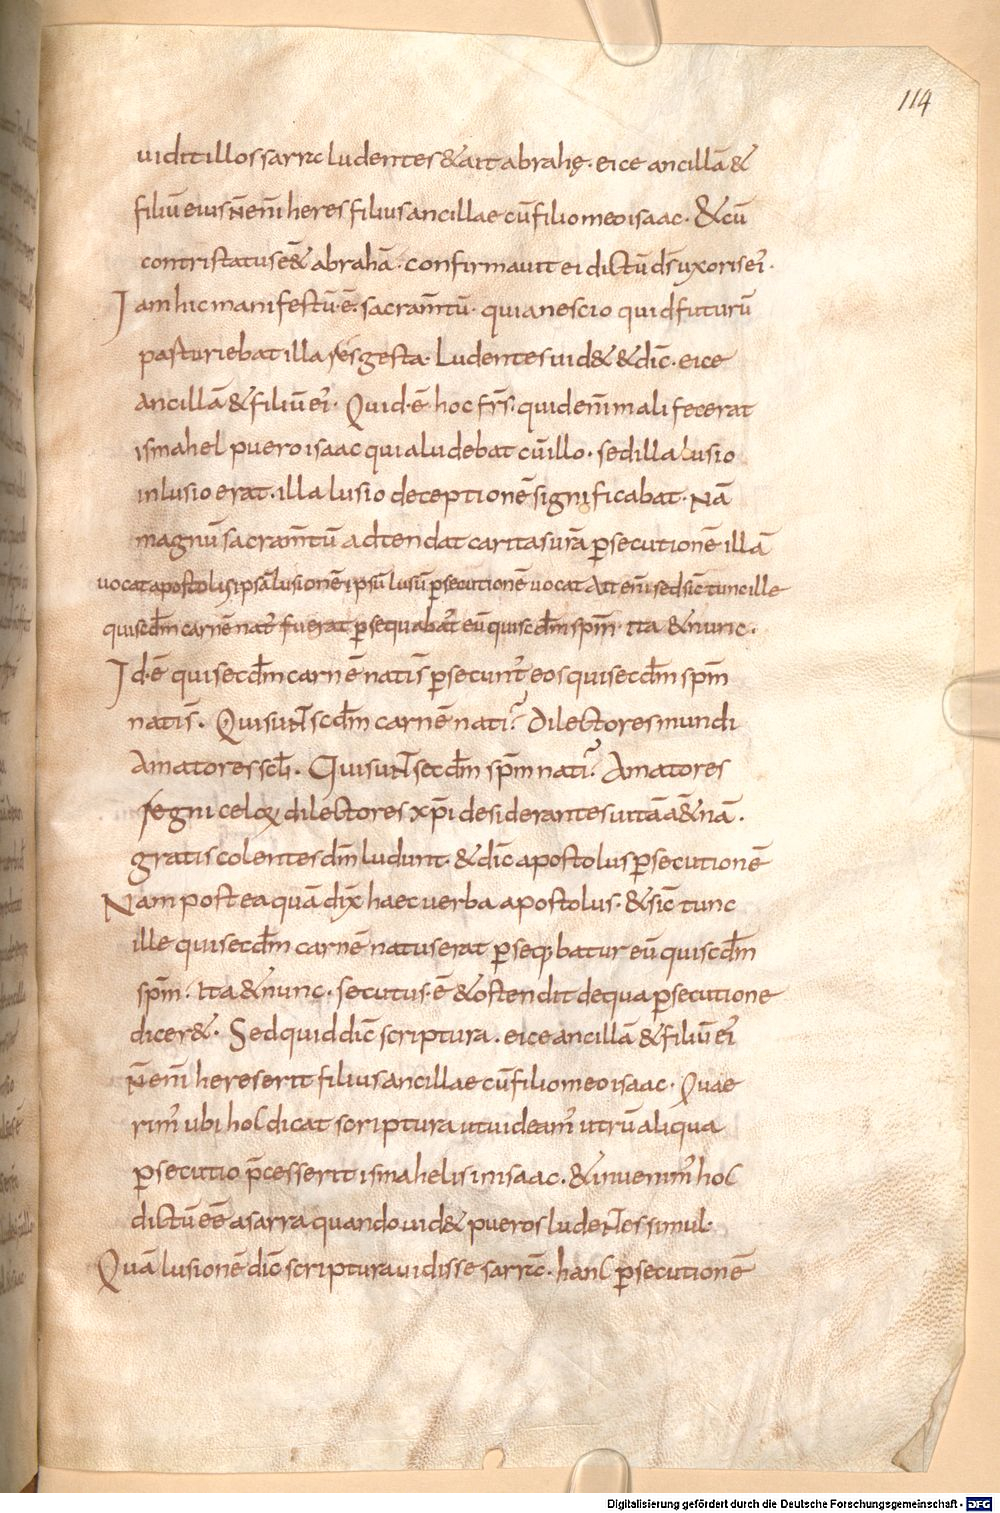 114
uidit illos sarra ludentes & ait abrahę. eice ancillā &
filiū eius n̄ enī heres filius ancillae cū filio meo isaac. & cū
contristatus eēt abrahā. confirmauit ei dictū dš uxoris ei'.
Iam hic manifestū. ē. sacram̄tū. quia nescio quid futurū
parturiebat illa res gesta. Ludentes uid& & dic̄. eice
ancillā & filiū ei'. Quid. ē. hoc fr̄s. quid enī mali fecerat
ismahel puero isaac quia ludebat cū illo. sed illa lusio
inlusio erat. illa lusio deceptionē significabat. Nā
magnū sacram̄tū adtendat caritas ur̄a p̱secutionē illā
uocat apostolus ipsā lusionē ipsū lusū p̱secutionē uocat Ait enī sed sic̄ tunc ille
qui scd̄m carnē nat' fuerat p̱sequabat' eū qui scd̄m sp̄m. Ita & nunc.
Id. ē qui secd̄m carnē natis̄ p̱secunt' eos qui secd̄m sp̄m
natis̄. Qui sunt scd̄m carnē nati? Dilectores mundi
Amatores scl̄i. Qui sunt secd̄m sp̄m nati? Amatores
regni celoꝝ dilectores xp̄i desiderantes uitā ā&nā.
gratis colentes dm̄ ludunt. & dic̄ apostolus p̱secutionē
Nam postea quā dix̄ haec uerba apostolus. & sic̄ tunc
ille qui secd̄m carnē natus erat p̱seq;batur eū qui scd̄m
sp̄m. Ita & nunc. secutus. ē & ostendit de qua p̱secutione
dicer&. Sed quid dic̄ scriptura. eice ancillā & filiū ei'
n̄ enī heres erit filius ancillae cū filio meo isaac. Quae
rim' ubi hoc dicat scriptura ut uideam' utrū aliqua
p̱secutio p̄cesserit ismahelis in isaac. & inuenim' hoc
dictū eē a sarra quando uid& pueros ludentes simul.
Quā lusionē dic̄ scriptura uidisse sarrā. hanc p̱secutionē
Digitalisierung gefördert durch die Deutsche Forschungsgemeinschaft - DFG